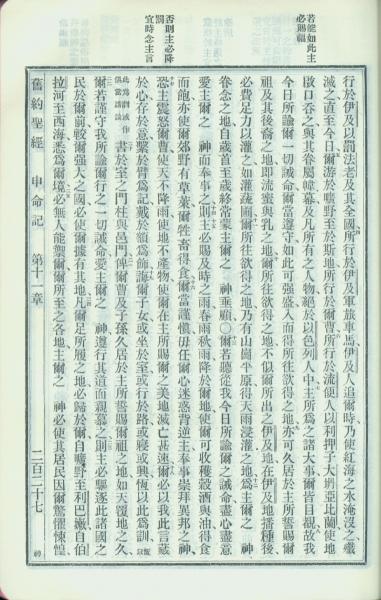 若能如此主
必賜福
否則主必降
罰
宜時念主言
行於伊及以罰法老及其全國所行於伊及軍旅車馬伊及人追爾時乃使紅海之水淹沒之殲
滅之直至今日爾游於曠野至於斯地所行於爾曹所行於流便人以利押子大坍亞比蘭使地
啟口吞之與其眷屬幃幕及凡所有之人物絕於以色列人中主所為之諸大事爾皆目覩故我
今日所諭爾一切誡命爾當遵守如此可強盛入而得所往欲得之地亦可久居於主所誓賜爾
祖及其後裔之地即流蜜與乳之地爾所往欲得之地不似爾所出之伊及地在伊及地播種後
必費足力以灌之如灌蔬圃爾所往欲得之地乃有山崗平原得天雨浸灌之地為主爾之 神
眷念之地自歲首至歲終常蒙主爾之 神垂顧〇爾若聽從我今日所諭爾之誡命盡心盡意
愛主爾之 神而奉事之則主必賜及時之雨春雨秋雨降於爾地使爾可收穫穀酒與油得食
而飽亦使爾郊野有草萊爾牲畜得食爾當謹慎毋任爾心迷惑背逆主奉事崇拜異邦之神
恐主震怒爾曹使天不降雨使地不產物使爾在主所賜爾之美地滅亡甚速爾必以我此言藏
於心存於意繫於臂為記戴於額為飾誨爾子女或坐於室或行於路或寢或興恆以此為訓
書於室之門柱與邑門俾爾曹及子孫久居於主所誓賜爾祖之地如天覆地之久
爾若謹守我所諭爾行之一切誡命愛主爾之 神遵行其道而親慕之則主必驅逐此諸國之
民於爾前較爾強大之國必使爾據有其地凡爾足所履之地必歸於爾自曠野至利巴嫩自伯
拉河至西海悉為爾境必無人能禦爾爾所至之各地主爾之 神必使其居民因爾驚懼悚惶
舊約聖經 申命記 第十一章 二百二十七